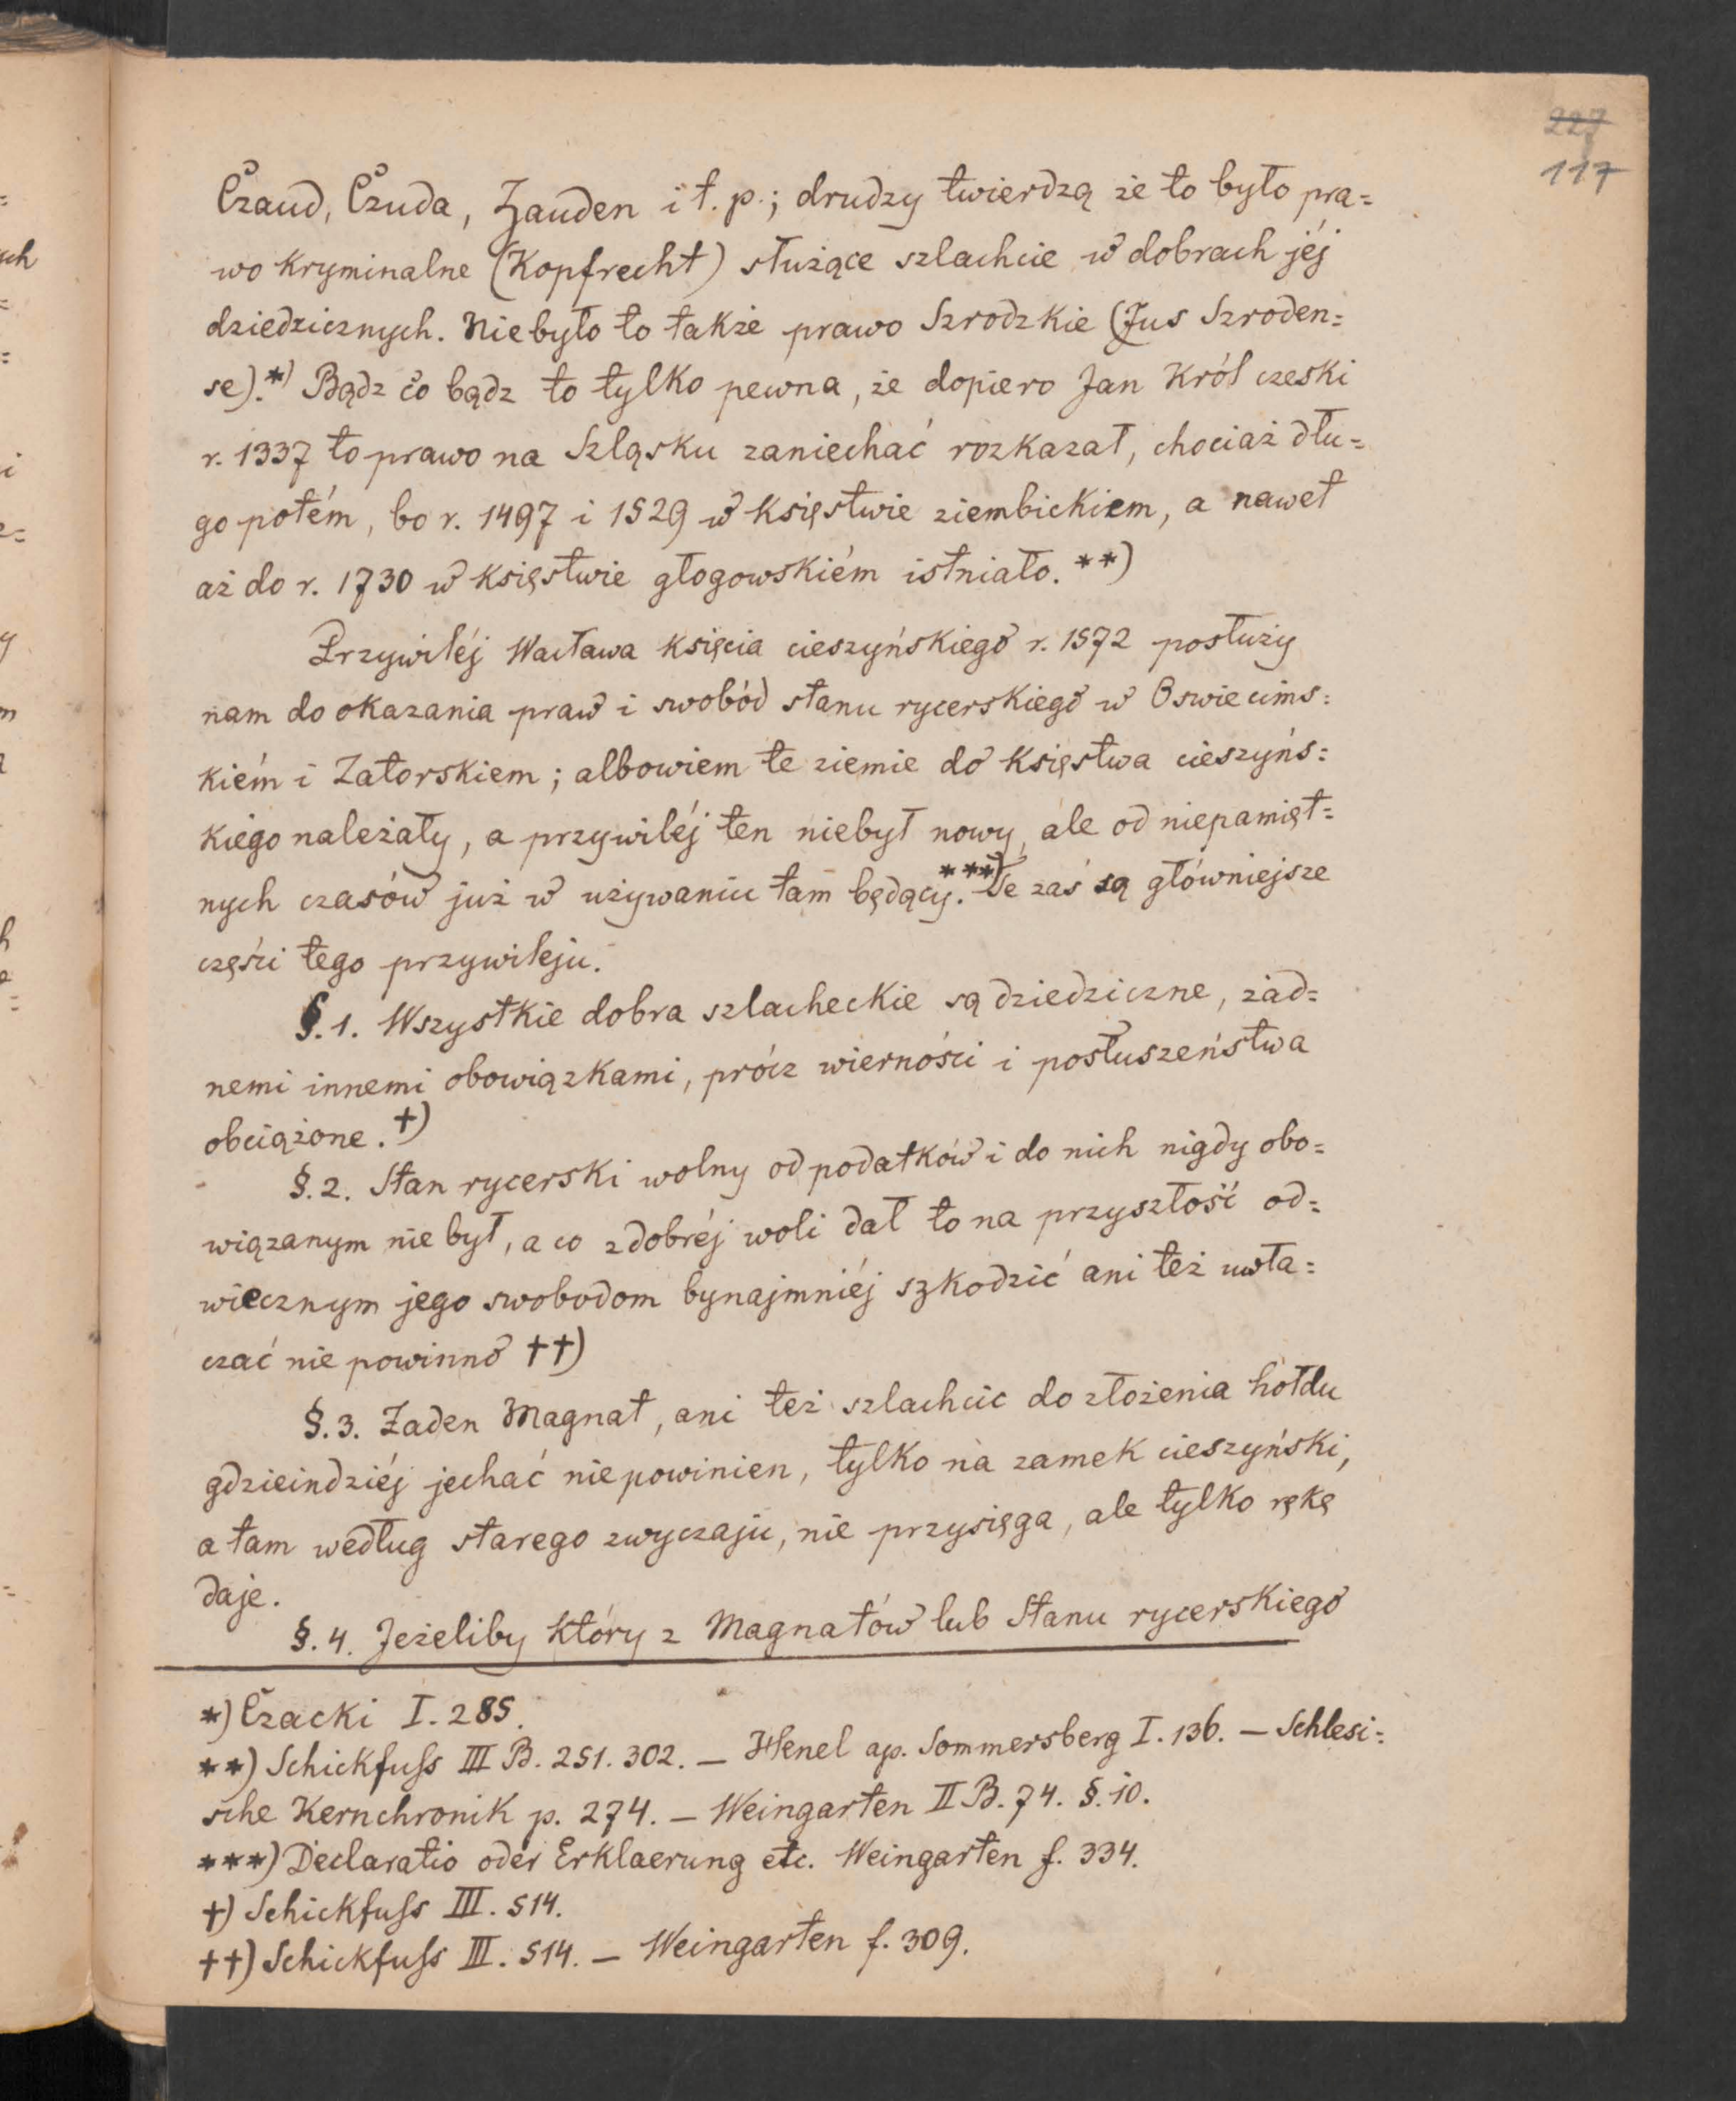 227
117
Czaud, Czuda, Zauden i t. p.; drudzy twierdzą że to było pra=
wo kryminalne (Kopfrecht) służące szlachcie w dobrach jéj
dziedzicznych. Niebyło to także prawo Szrodzkie (Jus Szroden=
se).*) Bądz co bądz to tylko pewna, że dopiero Jan Król czeski
r. 1337 to prawo na Szląsku zaniechać rozkazał, chociaż dłu=
go potém, bo r. 1497 i 1529 w Księstwie ziembickiem, a nawet
aż do r. 1730 w Księstwie głogowskiém istniało. **)
Przywiléj Wacława Księcia cieszyńskiego r. 1572 posłuży
nam do okazania praw i swobód stanu rycerskiego w Oswiecims=
kiém i Zatorskiem; albowiem te ziemie do Księstwa cieszyńs=
kiego należały, a przywiléj ten niebył nowy, ale od niepamięt=
nych czasów już w używaniu tam będący.***) Te zaś są główniejsze
części tego przywileju.
§. 1. Wszystkie dobra szlacheckie są dziedziczne, żad=
nemi innemi obowiązkami, prócz wierności i posłuszeństwa
obciążone. †)
§. 2. Stan rycerski wolny od podatków i do nich nigdy obo=
wiązanym nie był, a co z dobréj woli dał to na przyszłość od=
wiecznym jego swobodom bynajmniéj szkodzić ani też uwła=
czać nie powinno ††)
§. 3. Żaden Magnat, ani też szlachcic do złożenia hołdu
gdzieindziéj jechać niepowinien, tylko na zamek cieszyński,
a tam według starego zwyczaju, nie przysięga, ale tylko rękę
daje.
§. 4. Jeżeliby który z Magnatów lub Stanu rycerskiego
*) Czacki I. 285.
**) Schickfuſs III B. 251. 302. — Henel ap. Sommersberg I. 136. — Schlesi=
sche Kernchronik p. 274. — Weingarten II B. 74. §. 10.
***) Declaratio oder Erklaerung etc. Weingarten f. 334.
†) Schickfuſs III. 514.
††) Schickfuſs III. 514. — Weingarten f. 309.